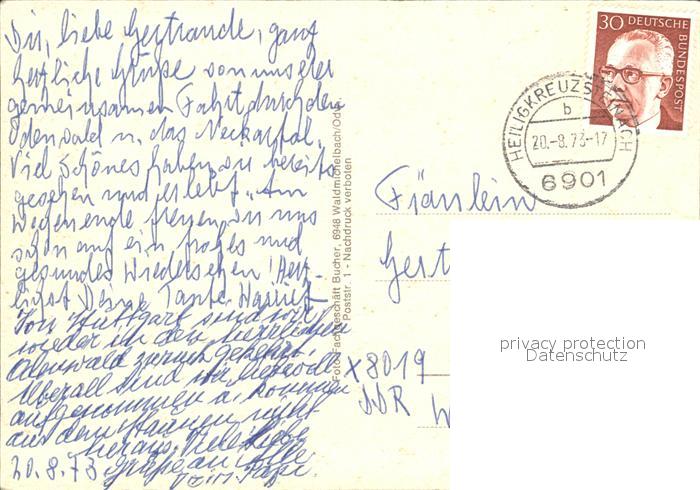 Dir, liebe Gertraude, ganz
herzliche Grüße von unserer
gemeinsamen Fahrt durch den
Odenwald u. das Neckartal.
Viel Schönes haben wir bereits
gesehen und erlebt. Am
Wochenende freuen wir uns
schon auf ein frohes und
gesundes Wiedersehen! Herz-
lichst Deine Tante
Von Stuttgart sind wir
wieder in den herrlichen
Odenwald zurückgekehrt.
Überall sind wir liebevoll
aufgenommen u. kommen
aus dem Staunen nicht
heraus. Viele liebe
20.8.73 Grüße an alle
Dein Papa
Bucher, 6948 Waldmichelbach/Odw.
Poststr. 1 - Nachdruck verboten
30 DEUTSCHE
BUNDESPOST
HEILIGKREUZSTEINACH
b
20.-8.73-17
6901
Fräulein
Gert
X8019
DDR
W
privacy protection
Datenschutz